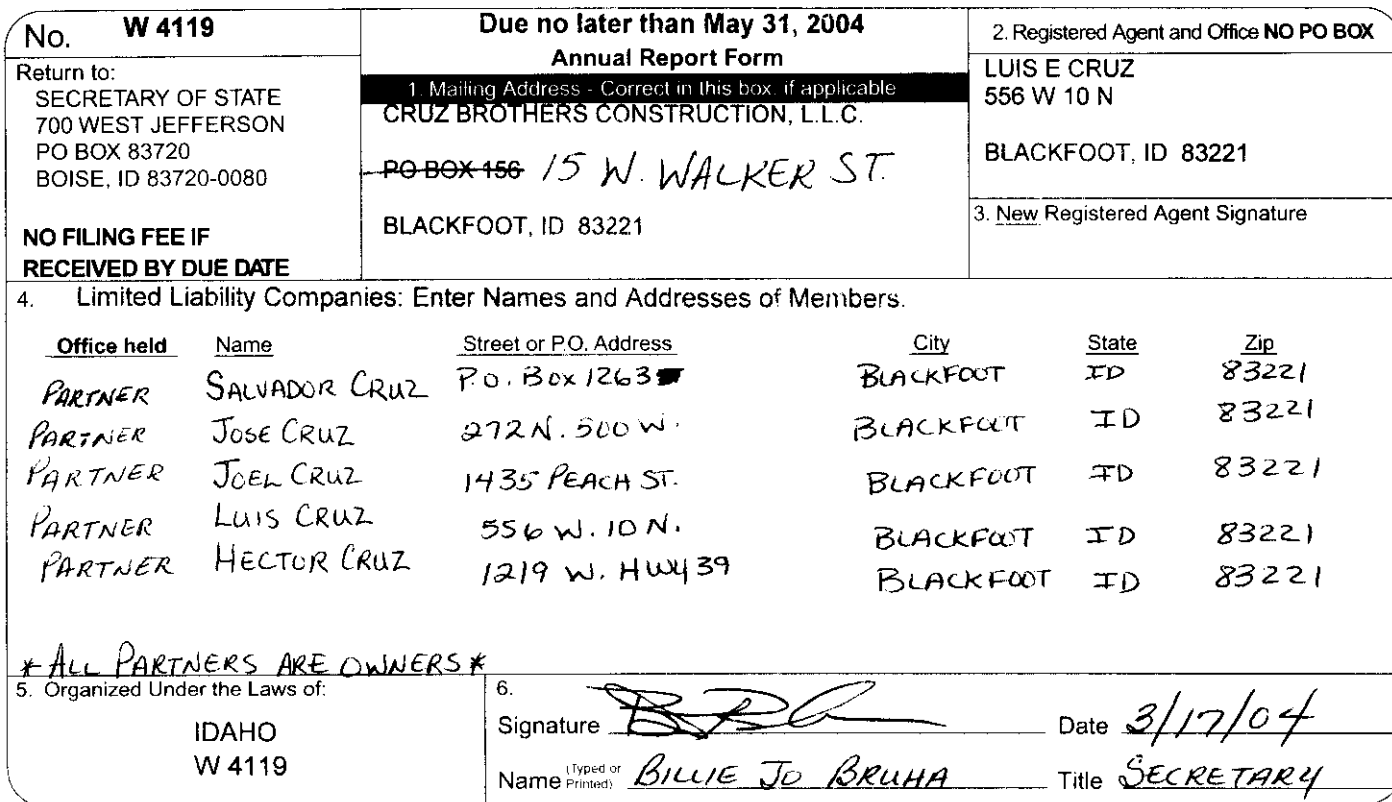 No. W 4119
Return to:
SECRETARY OF STATE
700 WEST JEFFERSON
PO BOX 83720
BOISE, ID 83720-0080
NO FILING FEE IF
RECEIVED BY DUE DATE
Due no later than May 31, 2004
Annual Report Form
1. Mailing Address - Correct in this box, if applicable
CRUZ BROTHERS CONSTRUCTION, L.L.C.
PO BOX 156 15 W. WALKER ST.
BLACKFOOT, ID 83221
2. Registered Agent and Office NO PO BOX
LUIS E CRUZ
556 W 10 N
BLACKFOOT, ID 83221
3. New Registered Agent Signature
4. Limited Liability Companies: Enter Names and Addresses of Members.
Office held Name Street or P.O. Address City State Zip
PARTNER SALVADOR CRUZ P.O. Box 1263 BLACKFOOT ID 83221
PARTNER JOSE CRUZ 272 N. 500 W. BLACKFOOT ID 83221
PARTNER JOEL CRUZ 1435 PEACH ST. BLACKFOOT ID 83221
PARTNER LUIS CRUZ 556 W. 10 N. BLACKFOOT ID 83221
PARTNER HECTOR CRUZ 1219 W. HWY 39 BLACKFOOT ID 83221
* ALL PARTNERS ARE OWNERS *
5. Organized Under the Laws of:
IDAHO
W 4119
6.
Signature Date 3/17/04
Name (Typed or Printed) BILLIE JO BRUHA Title SECRETARY